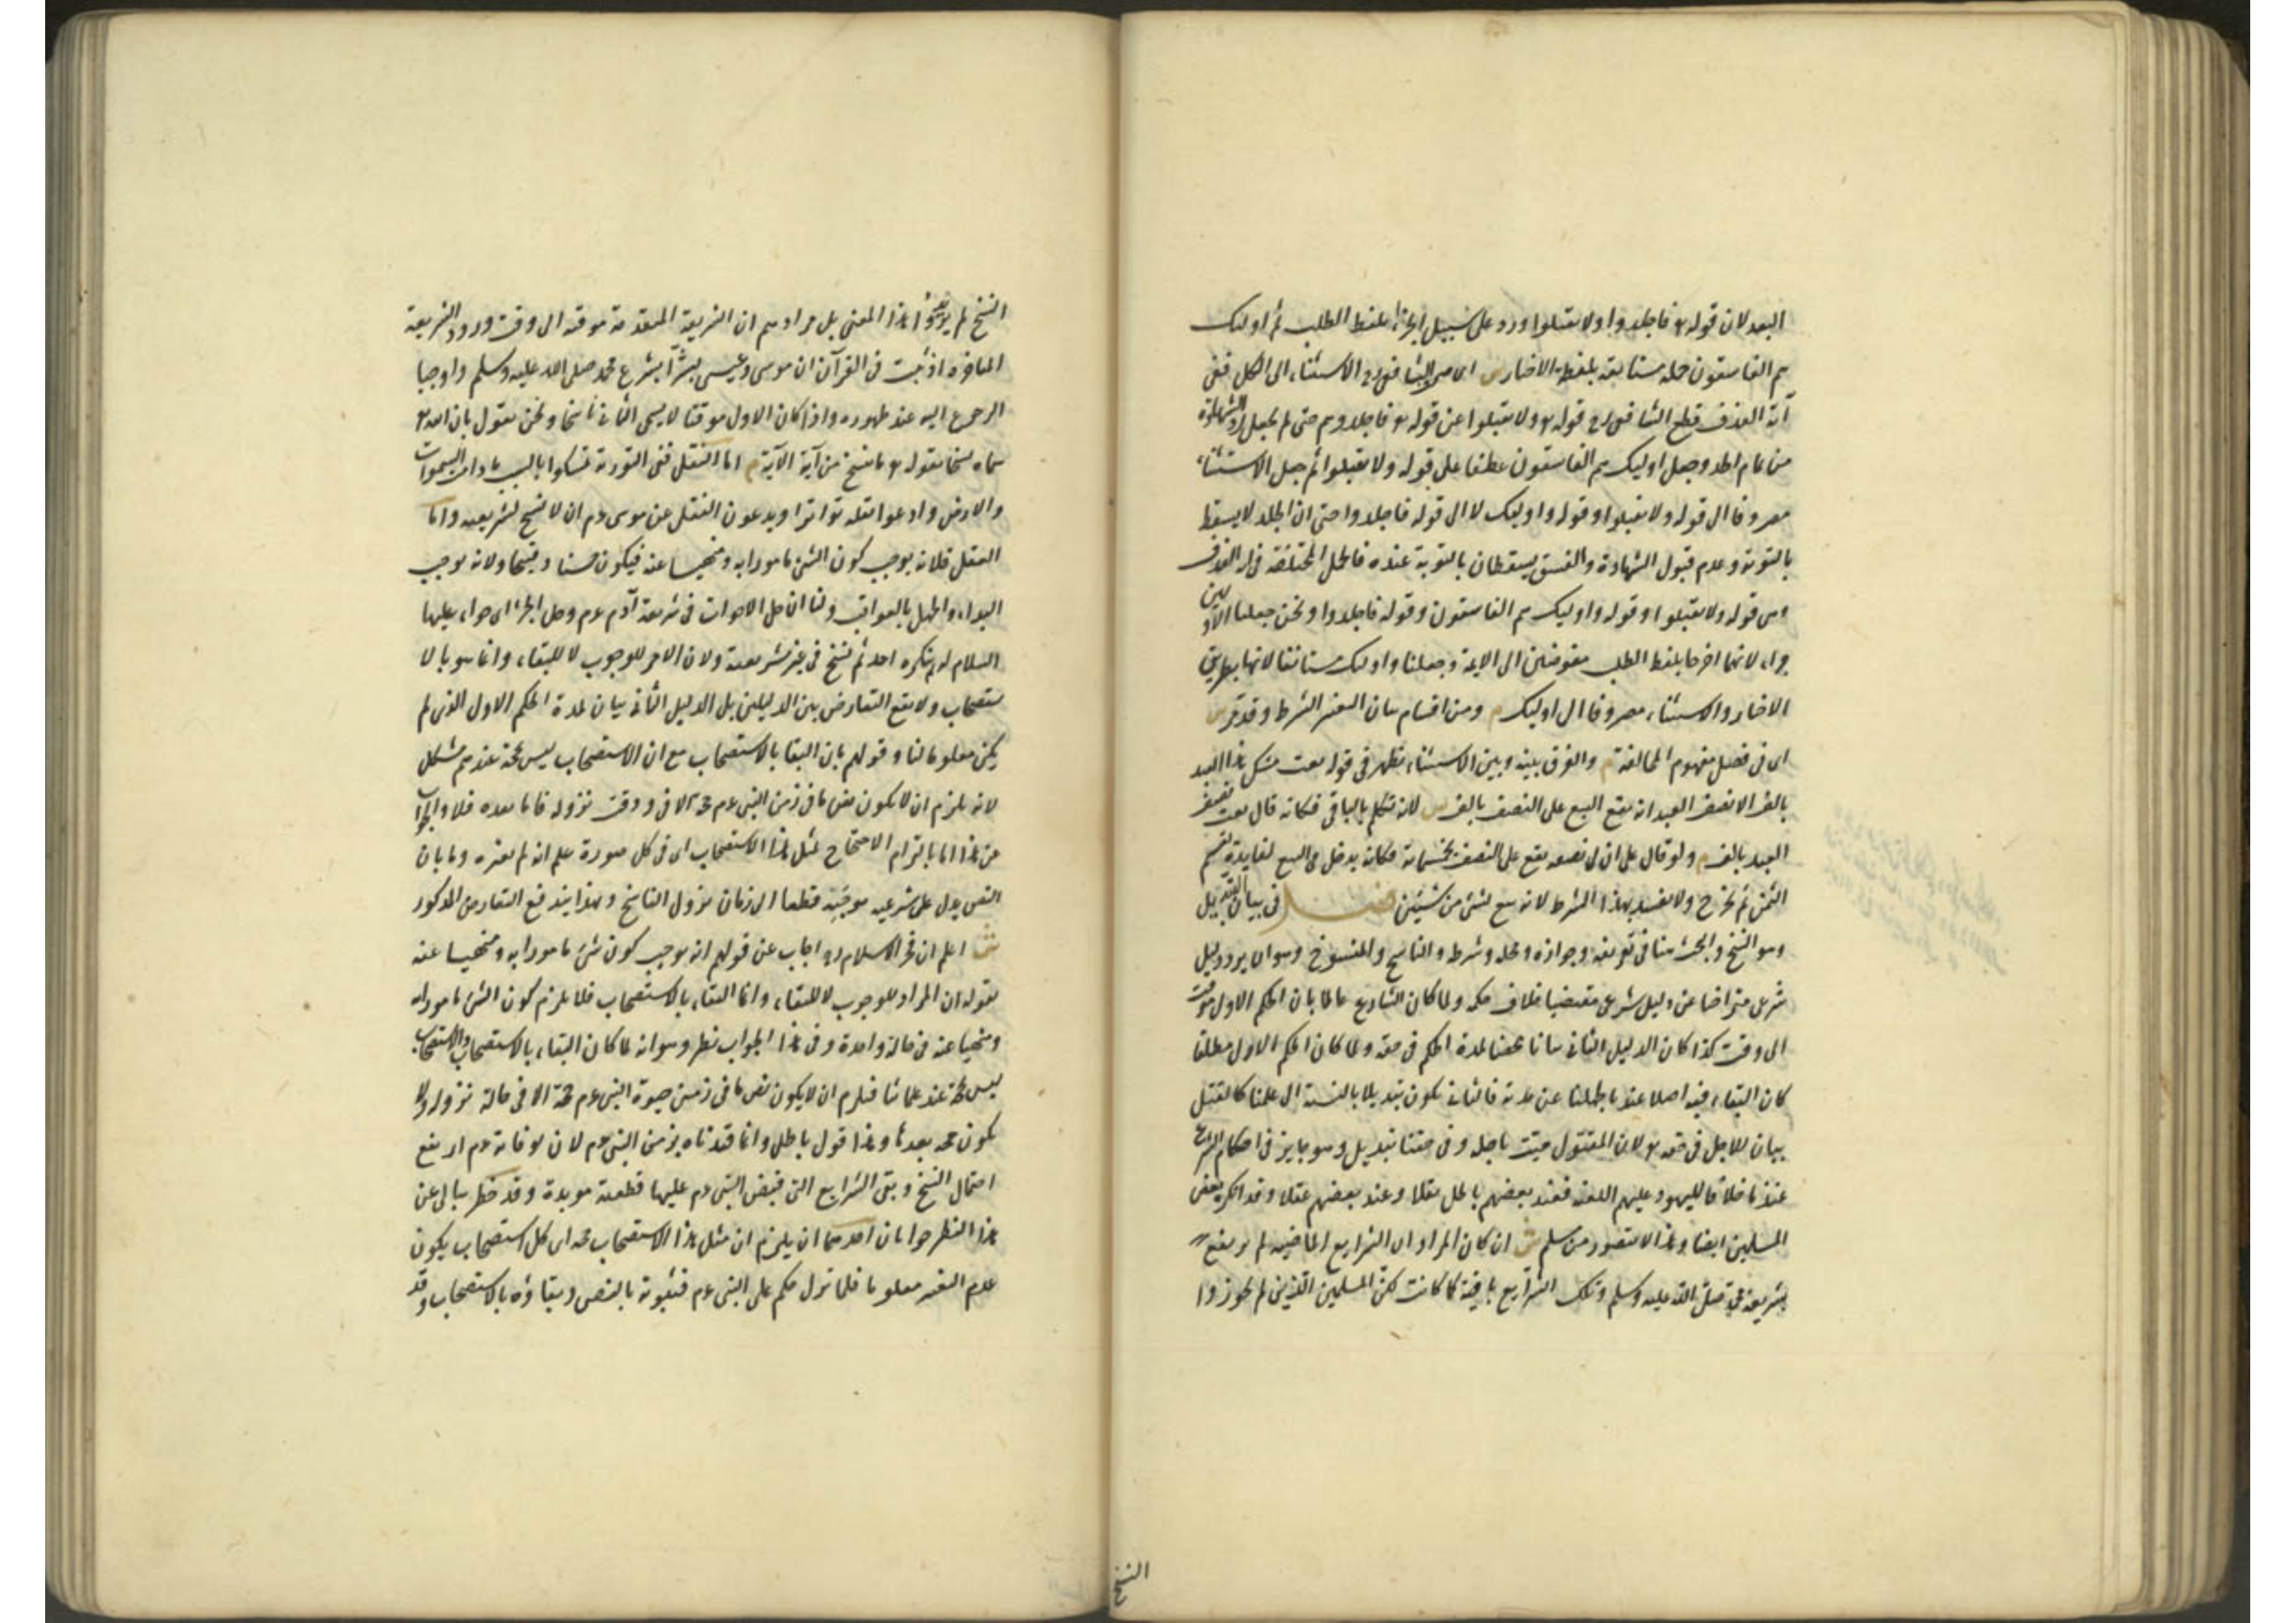 البعد لان قوله تع فاجلدوا ولا تقبلوا ورد على سبيل الجزاء بلفظ الطلب ثم اولئك
هم الفاسقون جمله مستانفة بلفظ الاخبار ش اى صرف الشافعى رح الاستثناء الى الكل ففى
آية القذف قطع الشافعى رح قوله تع ولا تقبلوا عن قوله تع فاجلدوهم حتى لم يجعل رد الشهادة
من تمام الحد وجعل اوليك هم الفاسقون عطفا على قوله ولا تقبلوا ثم جعل الاستثناء
مصروفا الى قوله ولا تقبلوا وقوله واوليك لا الى قوله فاجلدوا حتى ان الجلد لا يسقط
بالتوبة وعدم قبول الشهادة والفسق يسقطان بالتوبة عنده فالجمل المختلفة فى اية القذف
وهى قوله ولا تقبلوا وقوله واوليك هم الفاسقون وقوله فاجلدوا ونحن جعلنا الاوليين
جزاء لانهما اخرجا بلفظ الطلب مفوضين الى الايمة وجعلنا واولئك مستانفا لانها بطريق
الاخبار والاستثناء مصروفا الى اوليك م ومن اقسام بيان التغيير الشرط وقد مر ش
اى فى فصل مفهوم المخالفة م والفرق بينه وبين الاستثناء يظهر فى قوله بعت منك هذا العبد
بالف الا نصف العبد انه يقع البيع على النصف بالف ش لانه تكلم بالباقى فكانه قال بعت نصف
العبد بالف م ولو قال على ان لى نصفه يقع على النصف بخمسمائة فكانه يدخل فى البيع لفايدة تقسيم
الثمن ثم يخرج ولا يفسد بهذا الشرط لانه بيع لشئ من شيئين فصل فى بيان التبديل
وهو النسخ والبحث هنا فى تعريفه وجوازه ومحله وشرطه والناسخ والمنسوخ وهو ان يرد دليل
شرعى متراخيا عن دليل شرعى مقتضيا خلاف حكمه ولما كان الشارع عالما بان الحكم الاول موقت
الى وقت كذا كان الدليل الثانى بيانا محضا لمدة الحكم فى حقه ولما كان الحكم الاول مطلقا
كان البقاء فيه اصلا عندنا بجهلنا عن مدته فالثانى يكون تبديلا بالنسبة الى علمنا كالقتل
بيان للاجل فى حقه تع لان المقتول ميت باجله وفى حقنا تبديل وهو جايز فى احكام الشرع
عندنا خلافا لليهود عليهم اللعنه فعند بعضهم باطل نقلا وعند بعضهم عقلا وقد انكره بعض
المسلمين ايضا وهذا لا يتصور من مسلم ش ان كان المراد ان الشرايع الماضيه لم يرتفع
بشريعة محمد صلى الله عليه وسلم وتلك الشرايع باقية كما كانت لكن المسلمين الذين لم يجوزوا
النسخ
النسخ لم يريدوا هذا المعنى بل مرادهم ان الشريعة المتقدمة موقته الى وقت ورود الشريعة
المتاخره اذ ثبت فى القرآن ان موسى وعيسى بشرا بشرع محمد صلى الله عليه وسلم واوجبا
الرجوع اليه عند ظهوره واذا كان الاول موقتا لا يسمى الثانى ناسخا ونحن نقول بان الله تع
سماه نسخا بقوله تع ما ننسخ من آية الآية م اما النقل ففى التورية تمسكوا بالسبت ما دامت السموات
والارض وادعوا نقله تواترا ويدعون النقل عن موسى عم ان لا نسخ لشريعته واما
العقل فلانه يوجب كون الشئ مامورا به ومنهيا عنه فيكون حسنا وقبيحا ولانه يوجب
البداء والجهل بالعواقب ولنا ان حل الاخوات فى شريعة آدم عم وحل الجزء اى حواء عليها
السلام له لم ينكره احد ثم نسخ فى غير شريعته ولان الامر للوجوب لا للبقاء وانما هو بالا
ستصحاب ولا يقع التعارض بين الدليلين بل الدليل الثانى بيان لمدة الحكم الاول الذى لم
يكن معلوما لنا وقولهم بان البقا بالاستصحاب مع ان الاستصحاب ليس بحجة عندهم مشكل
لانه يلزم ان لا يكون نص ما فى زمن النبى عم حجة الا فى وقت نزوله فاما بعده فلا والجواب
عن هذا اما بالتزام الاحتجاج لمثل هذا الاستصحاب اى فى كل صورة علم انه لم يغيره واما بان
النص يدل على شرعيه موجبه قطعا الى زمان نزول الناسخ وبهذا يندفع التعارض المذكور
ش اعلم ان فخر الاسلام رح اجاب عن قولهم انه يوجب كون شئ مامورا به ومنهيا عنه
بقوله ان المراد للوجوب لا للبقاء وانما البقاء بالاستصحاب فلا يلزم كون الشئ مامورا به
ومنهيا عنه فى حالة واحدة وفى هذا الجواب نظر وهو انه لما كان البقاء بالاستصحاب والاستصحاب
ليس بحجة عند علمائنا فيلزم ان لا يكون نص ما فى زمن حيوة النبى عم حجة الا فى حالة نزوله ولا
يكون حجه بعدها وهذا قول باطل وانما قيدناه بزمن النبى عم لان بوفاته عم ارتفع
احتمال النسخ وبقى الشرايع التى قبض النبى عم عليها قطعية موبدة وقد خطر ببالى عن
هذا النظر جوابان احدهما ان يلزم ان مثل هذا الاستصحاب حجه اى كل استصحاب يكون
عدم التغير معلوما فلما نزل حكم على النبى عم فثبوته بالنص وبقاؤه بالاستصحاب وقد